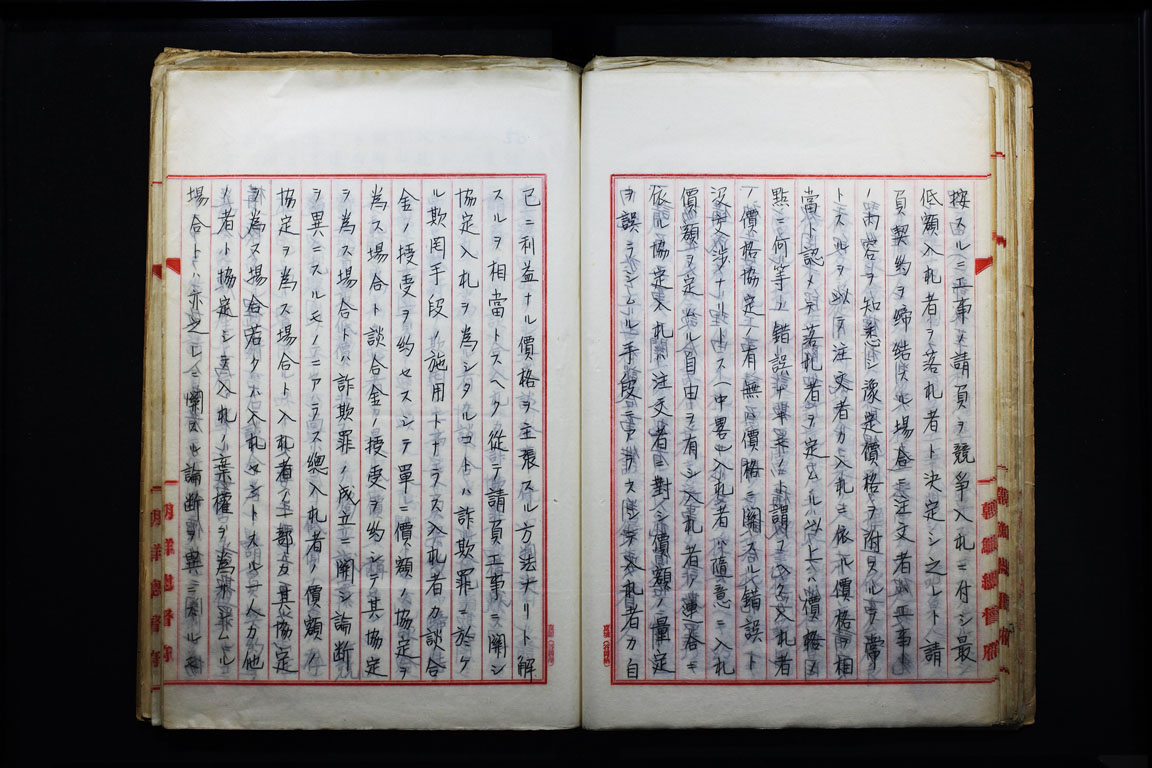 按スルニ工事ノ請負ヲ競爭入札ニ付シ最
低額入札者ヲ落札者ト決定シ之レト請
負契約ヲ締結スル場合ニ注文者ハ工事
ノ内容ヲ知悉シ豫定價格ヲ附スルヲ常
トスルヲ以テ注文者カ入札ニ依ル價格ヲ相
當ト認メテ落札者ヲ定ムル以上ハ價格ノ
點ニ何等ノ錯誤ナ ト謂フヘク入札者
ノ價格協定ノ有無ハ價格ニ關スル錯誤ト
沒交渉ナリトス(中畧)入札者ハ隨意ニ入札
價額ヲ定ムル自由ヲ有シ入札者ノ連合ニ
依ル協定入札ハ注文者ニ對シ價額ノ量定
ヲ誤ラシムル手段ニアラスシテ入札者カ自
己ニ利益ナル價格ヲ主張スル方法ナリト解
スルヲ相當トスヘク從テ請負工事ニ關シ
協定入札ヲ為シタルコトハ詐欺罪ニ於ケ
ル欺罔手段ノ施用トナラス入札者カ談合
金ノ授受ヲ約セスシテ單ニ價額ノ協定ヲ
為ス場合ト談合金ノ授受ヲ約シテ其協定
ヲ為ス場合トハ詐欺罪ノ成立ニ關シ論斷
ヲ異ニスルモノニアラス總入札者ノ價額ノ
協定ヲ為ス場合ト入札者ノ一部 其協定
ヲ為ス場合若クハ入札セントスル一人カ他
ノ者ト協定シ 入札ノ棄權ヲ為サシムル
場合トハ亦之レニ關スル論斷ヲ異ニスルモ